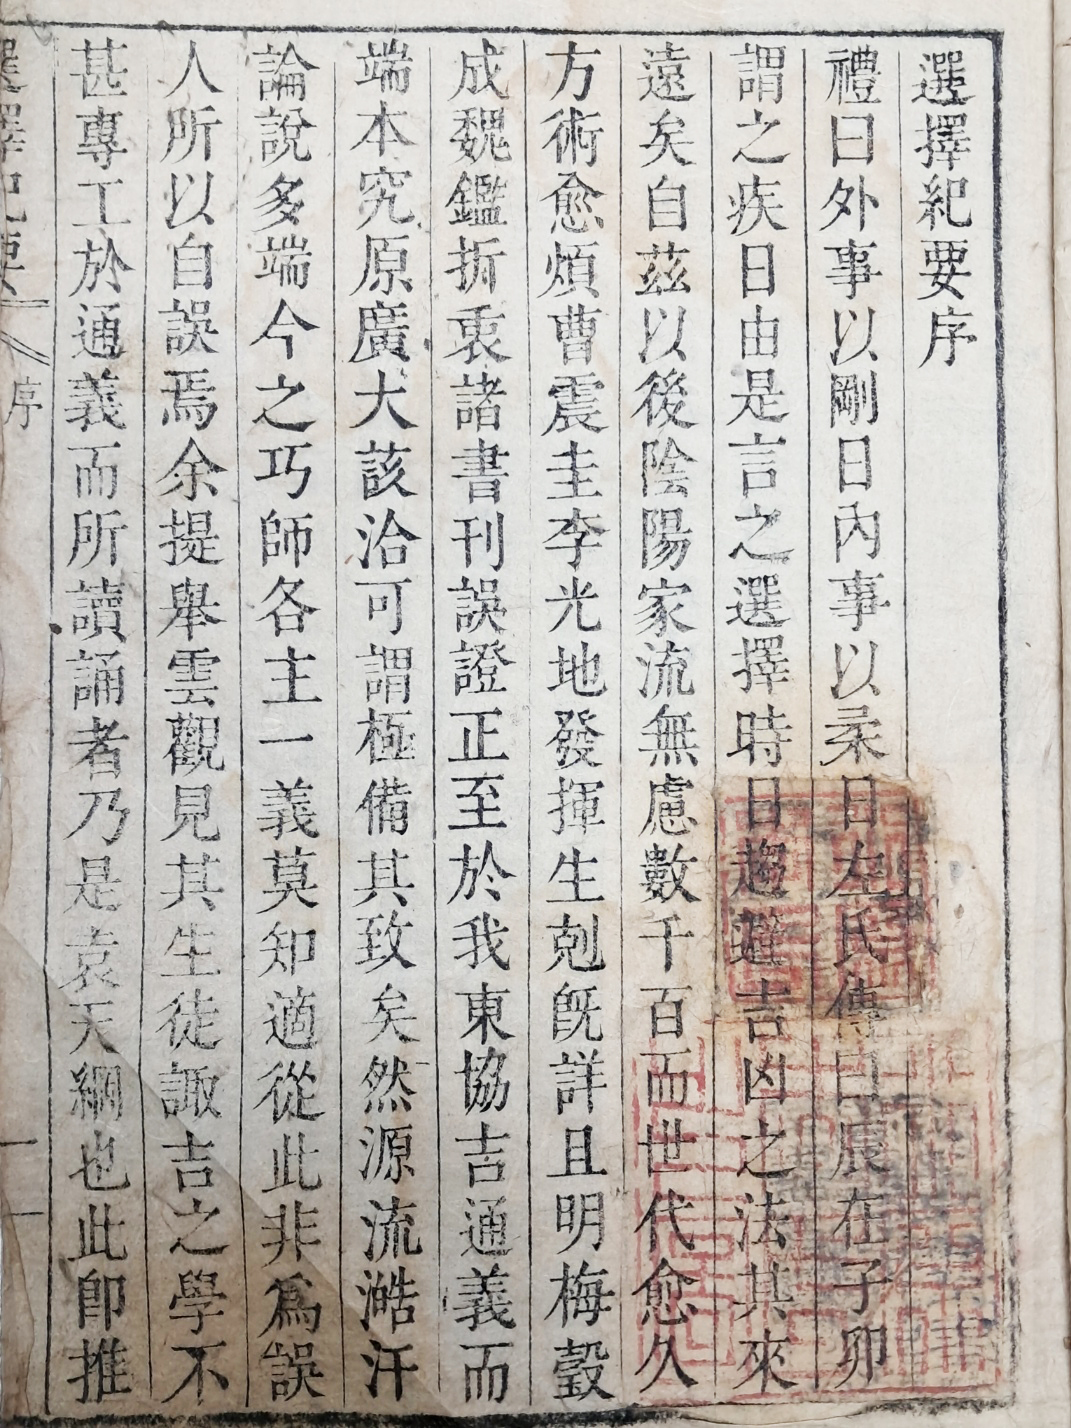 選擇紀要序
禮曰外事以剛日內事以柔日左氏傳曰辰在子卯
謂之疾日由是言之選擇時日趨避吉凶之法其來
遠矣自茲以後陰陽家流無慮數千百而世代愈久
方術愈煩曹震圭李光地發揮生剋旣詳且明梅瑴
成魏鑑折衷諸書刊誤證正至於我東協吉通義而
端本究原廣大該洽可謂極備其致矣然源流澔汗
論說多端今之巧師各主一義莫知適從此非爲誤
人所以自誤焉余提擧雲觀見其生徒諏吉之學不
甚專工於通義而所讀誦者乃是袁天綱也此卽推
選擇紀要 序 一